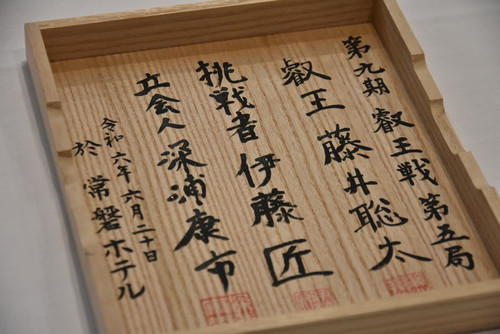 第九期 叡王戦 第五局
叡王 藤井聡太
挑戦者 伊藤 匠
立会人 深浦康市
令和六年六月二十日
於 常磐ホテル